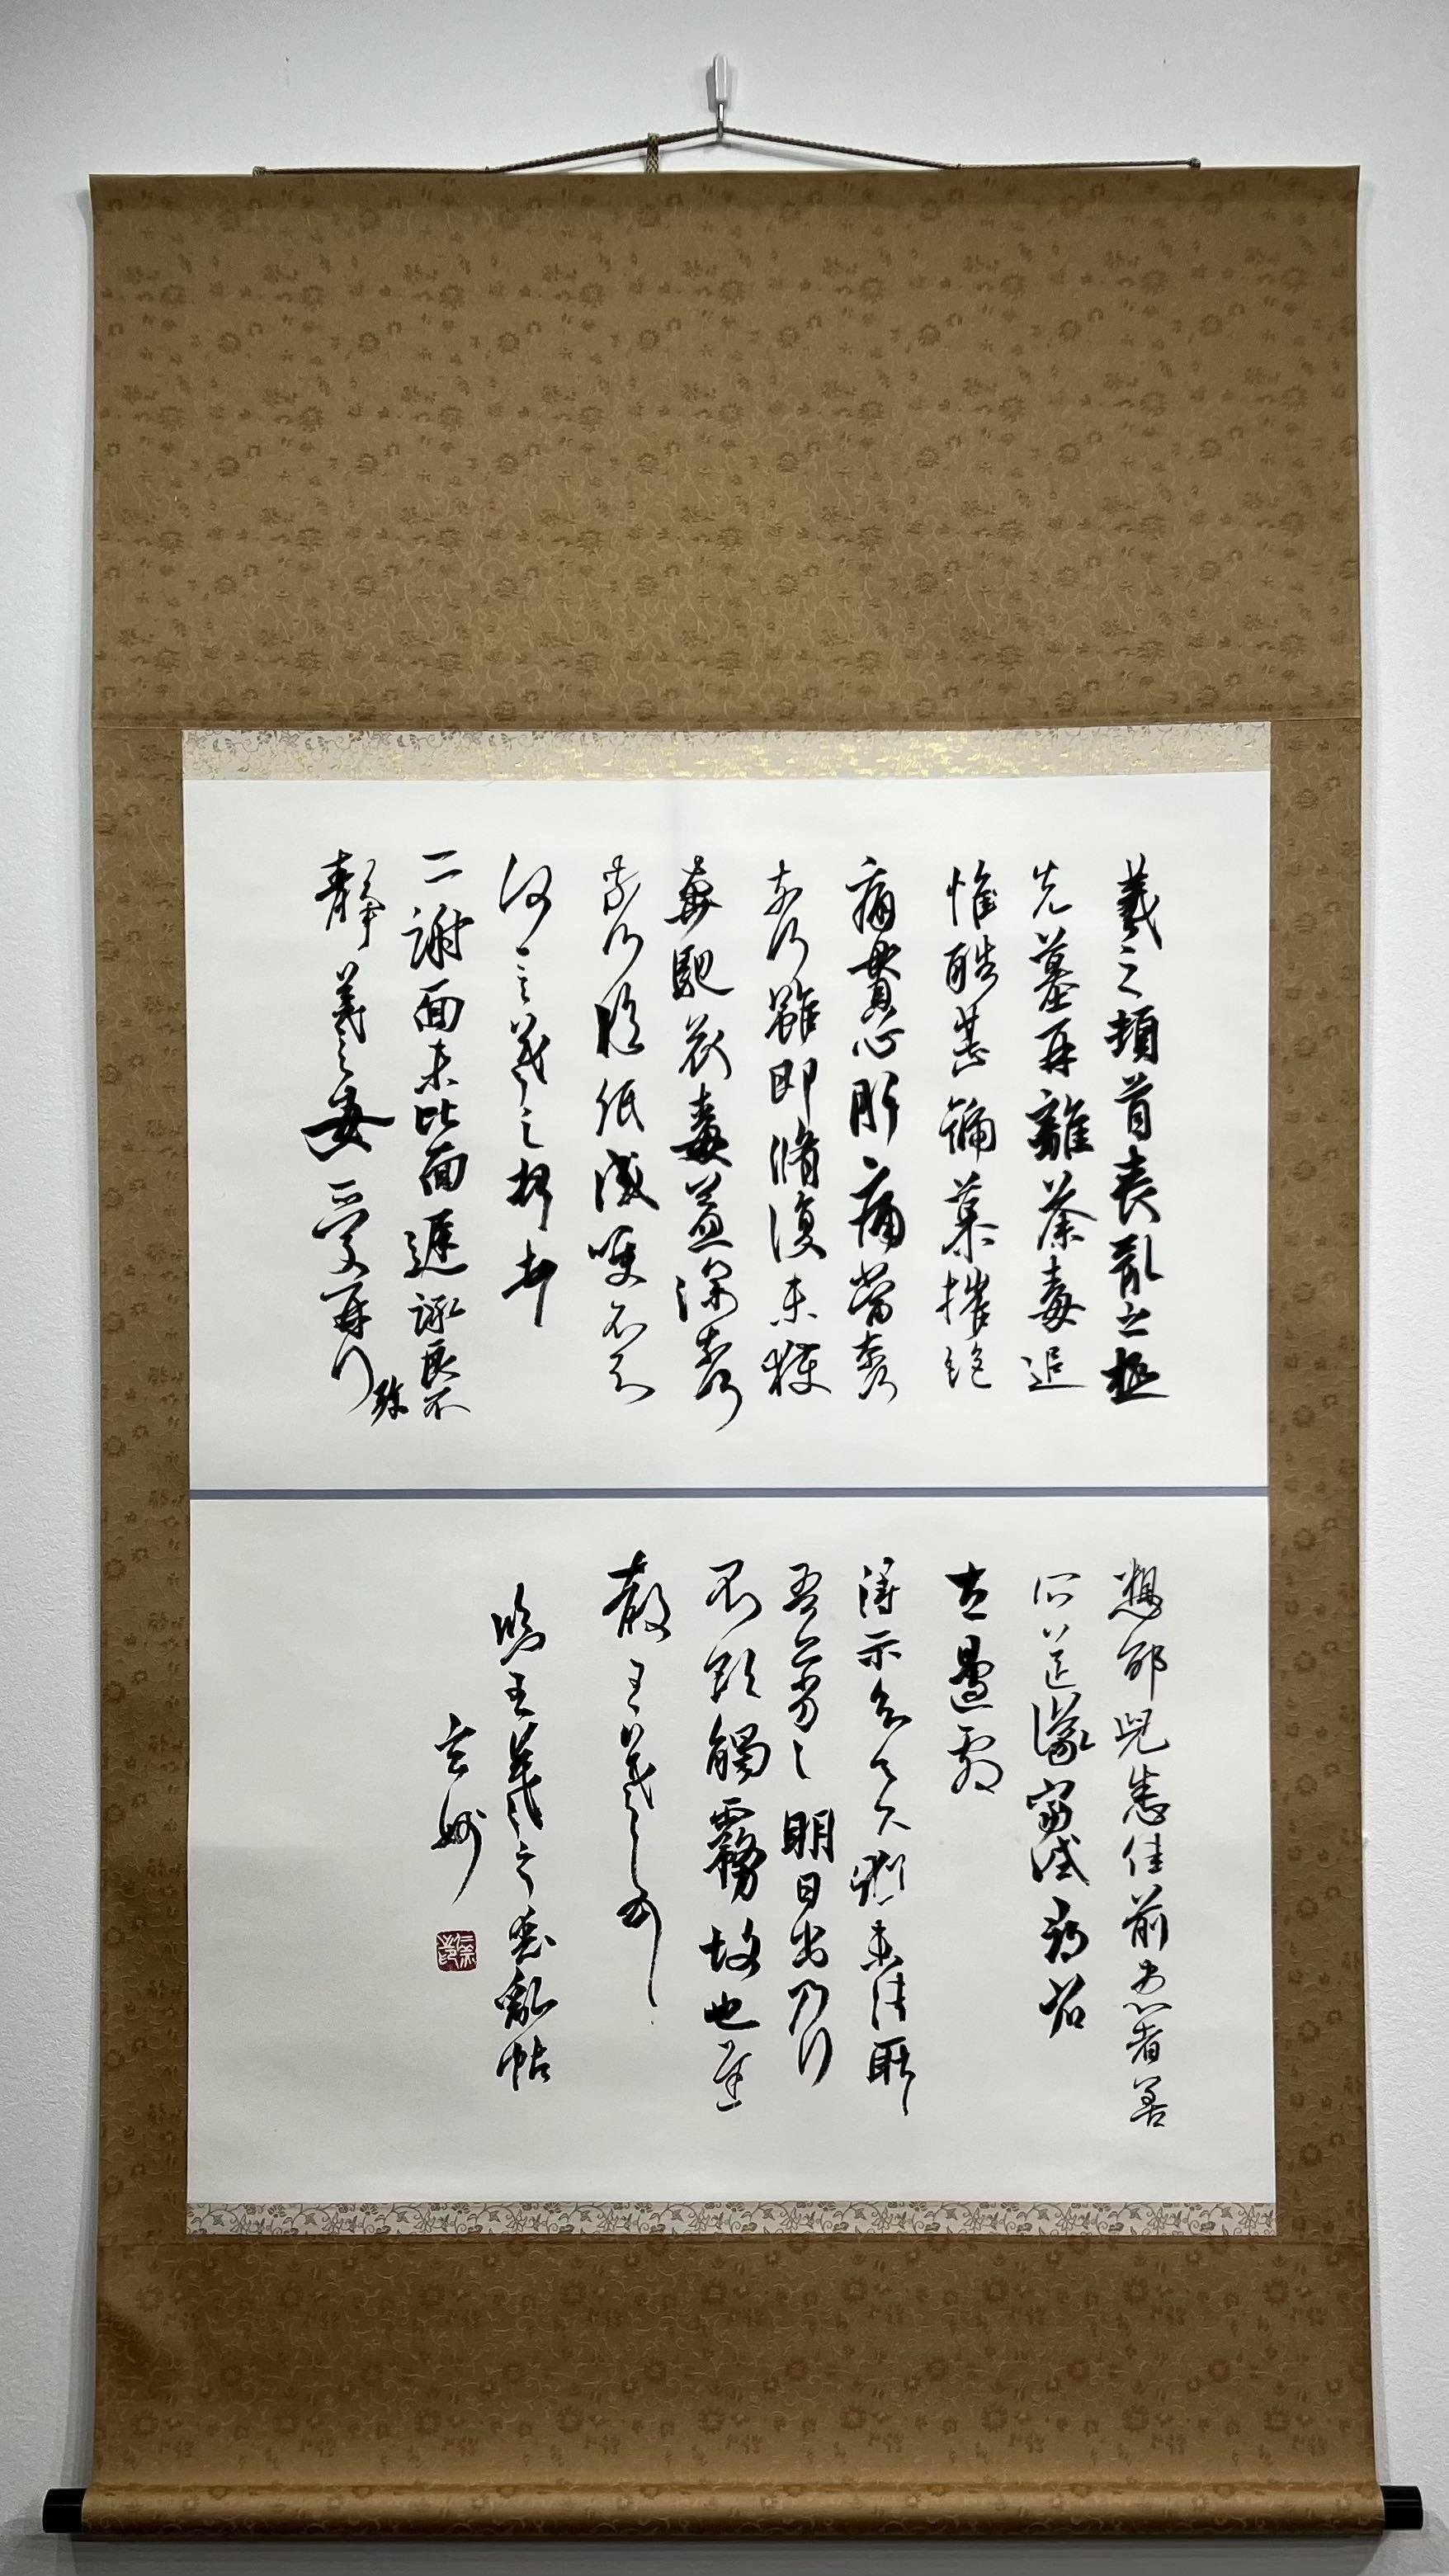 羲之頓首喪亂之極
先墓再離荼毒追
惟酷甚號慕摧絶
痛貫心肝痛當奈何
奈何雖即脩復未獲
奔馳哀毒益深奈何
奈何臨紙感哽不知
何言羲之頓首頓首
二謝面未比面遲詠良不
珍
靜羲之女愛再拜
想邵兒悉佳前患者善
所送議當試尋省
左邊劇
得示知足下猶未佳耿
吾亦劣劣明日出乃行
不欲觸霧故也遲
散王羲之頓首
臨王羲之喪亂帖
玄妙